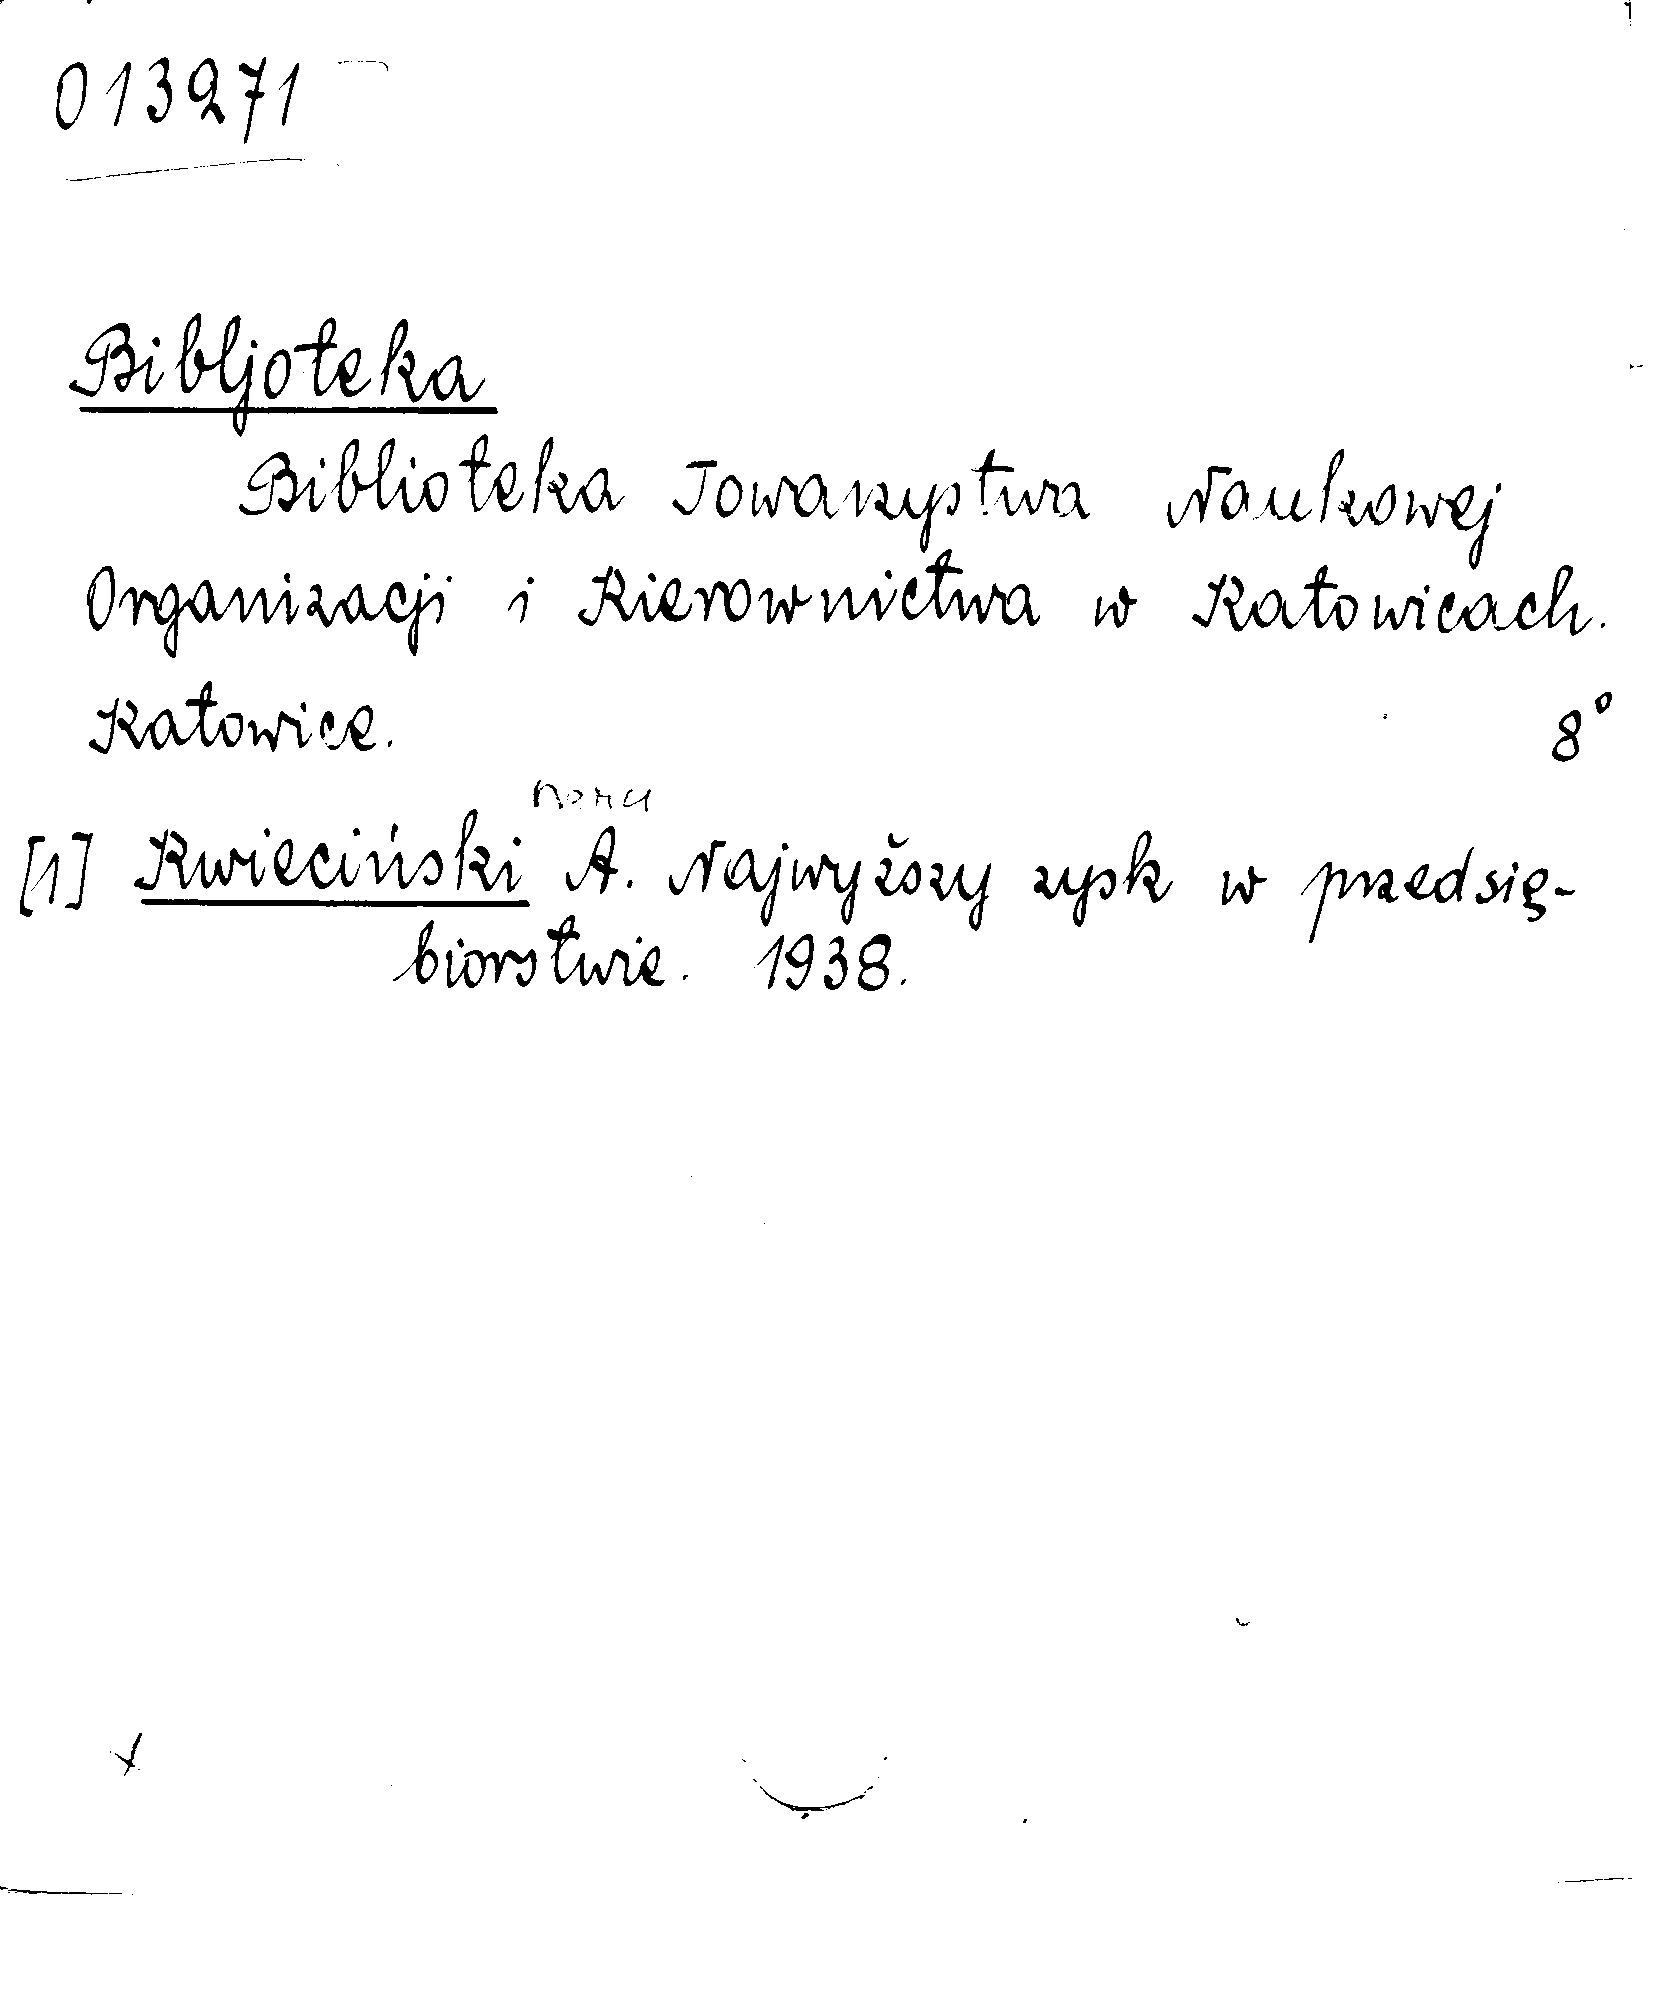 013271
Bibljoteka
Biblioteka Towarzystwa Naukowej
Organizacji i Kierownictwa w Katowicach.
Katowice. 8°
[1] Kwieciński A. Najwyższy zysk w przedsię-
biorstwie. 1938.